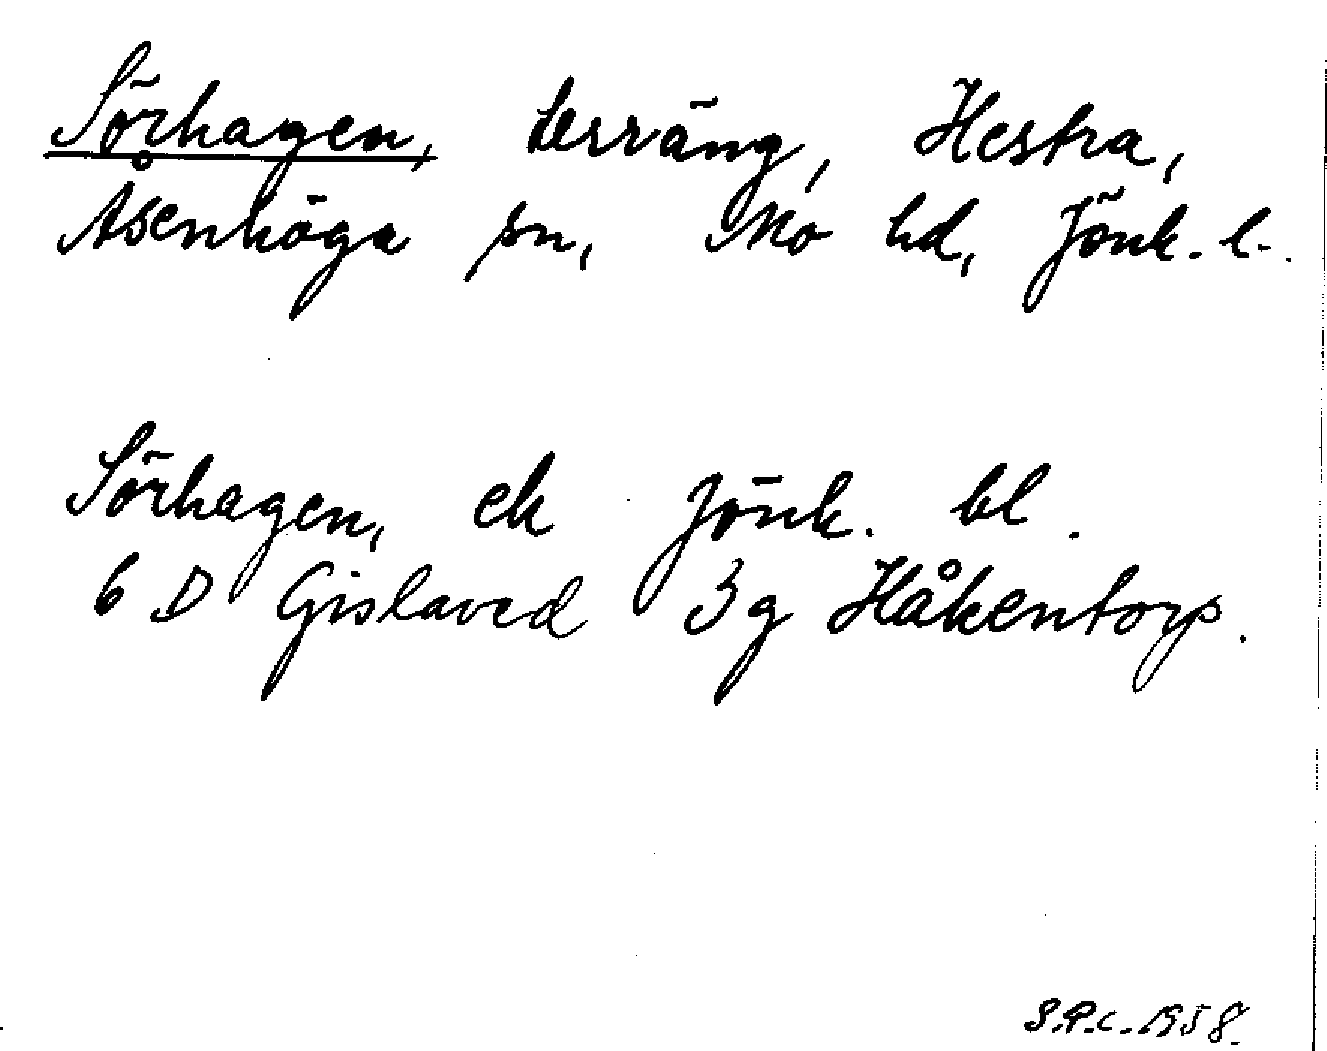 Sörhagen, terräng, Hestra,
Åsenhöga sn, Mo hd, Jönk. l.
Sörhagen, ek Jönk. bl.
6 D Gislaved 3g Håkentorp.
S.P.C. 1958.